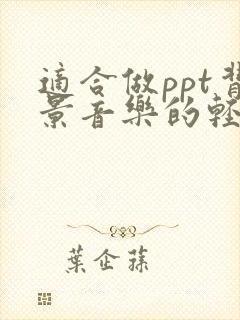 適合做ppt背
景音樂的輕
葉企蓀